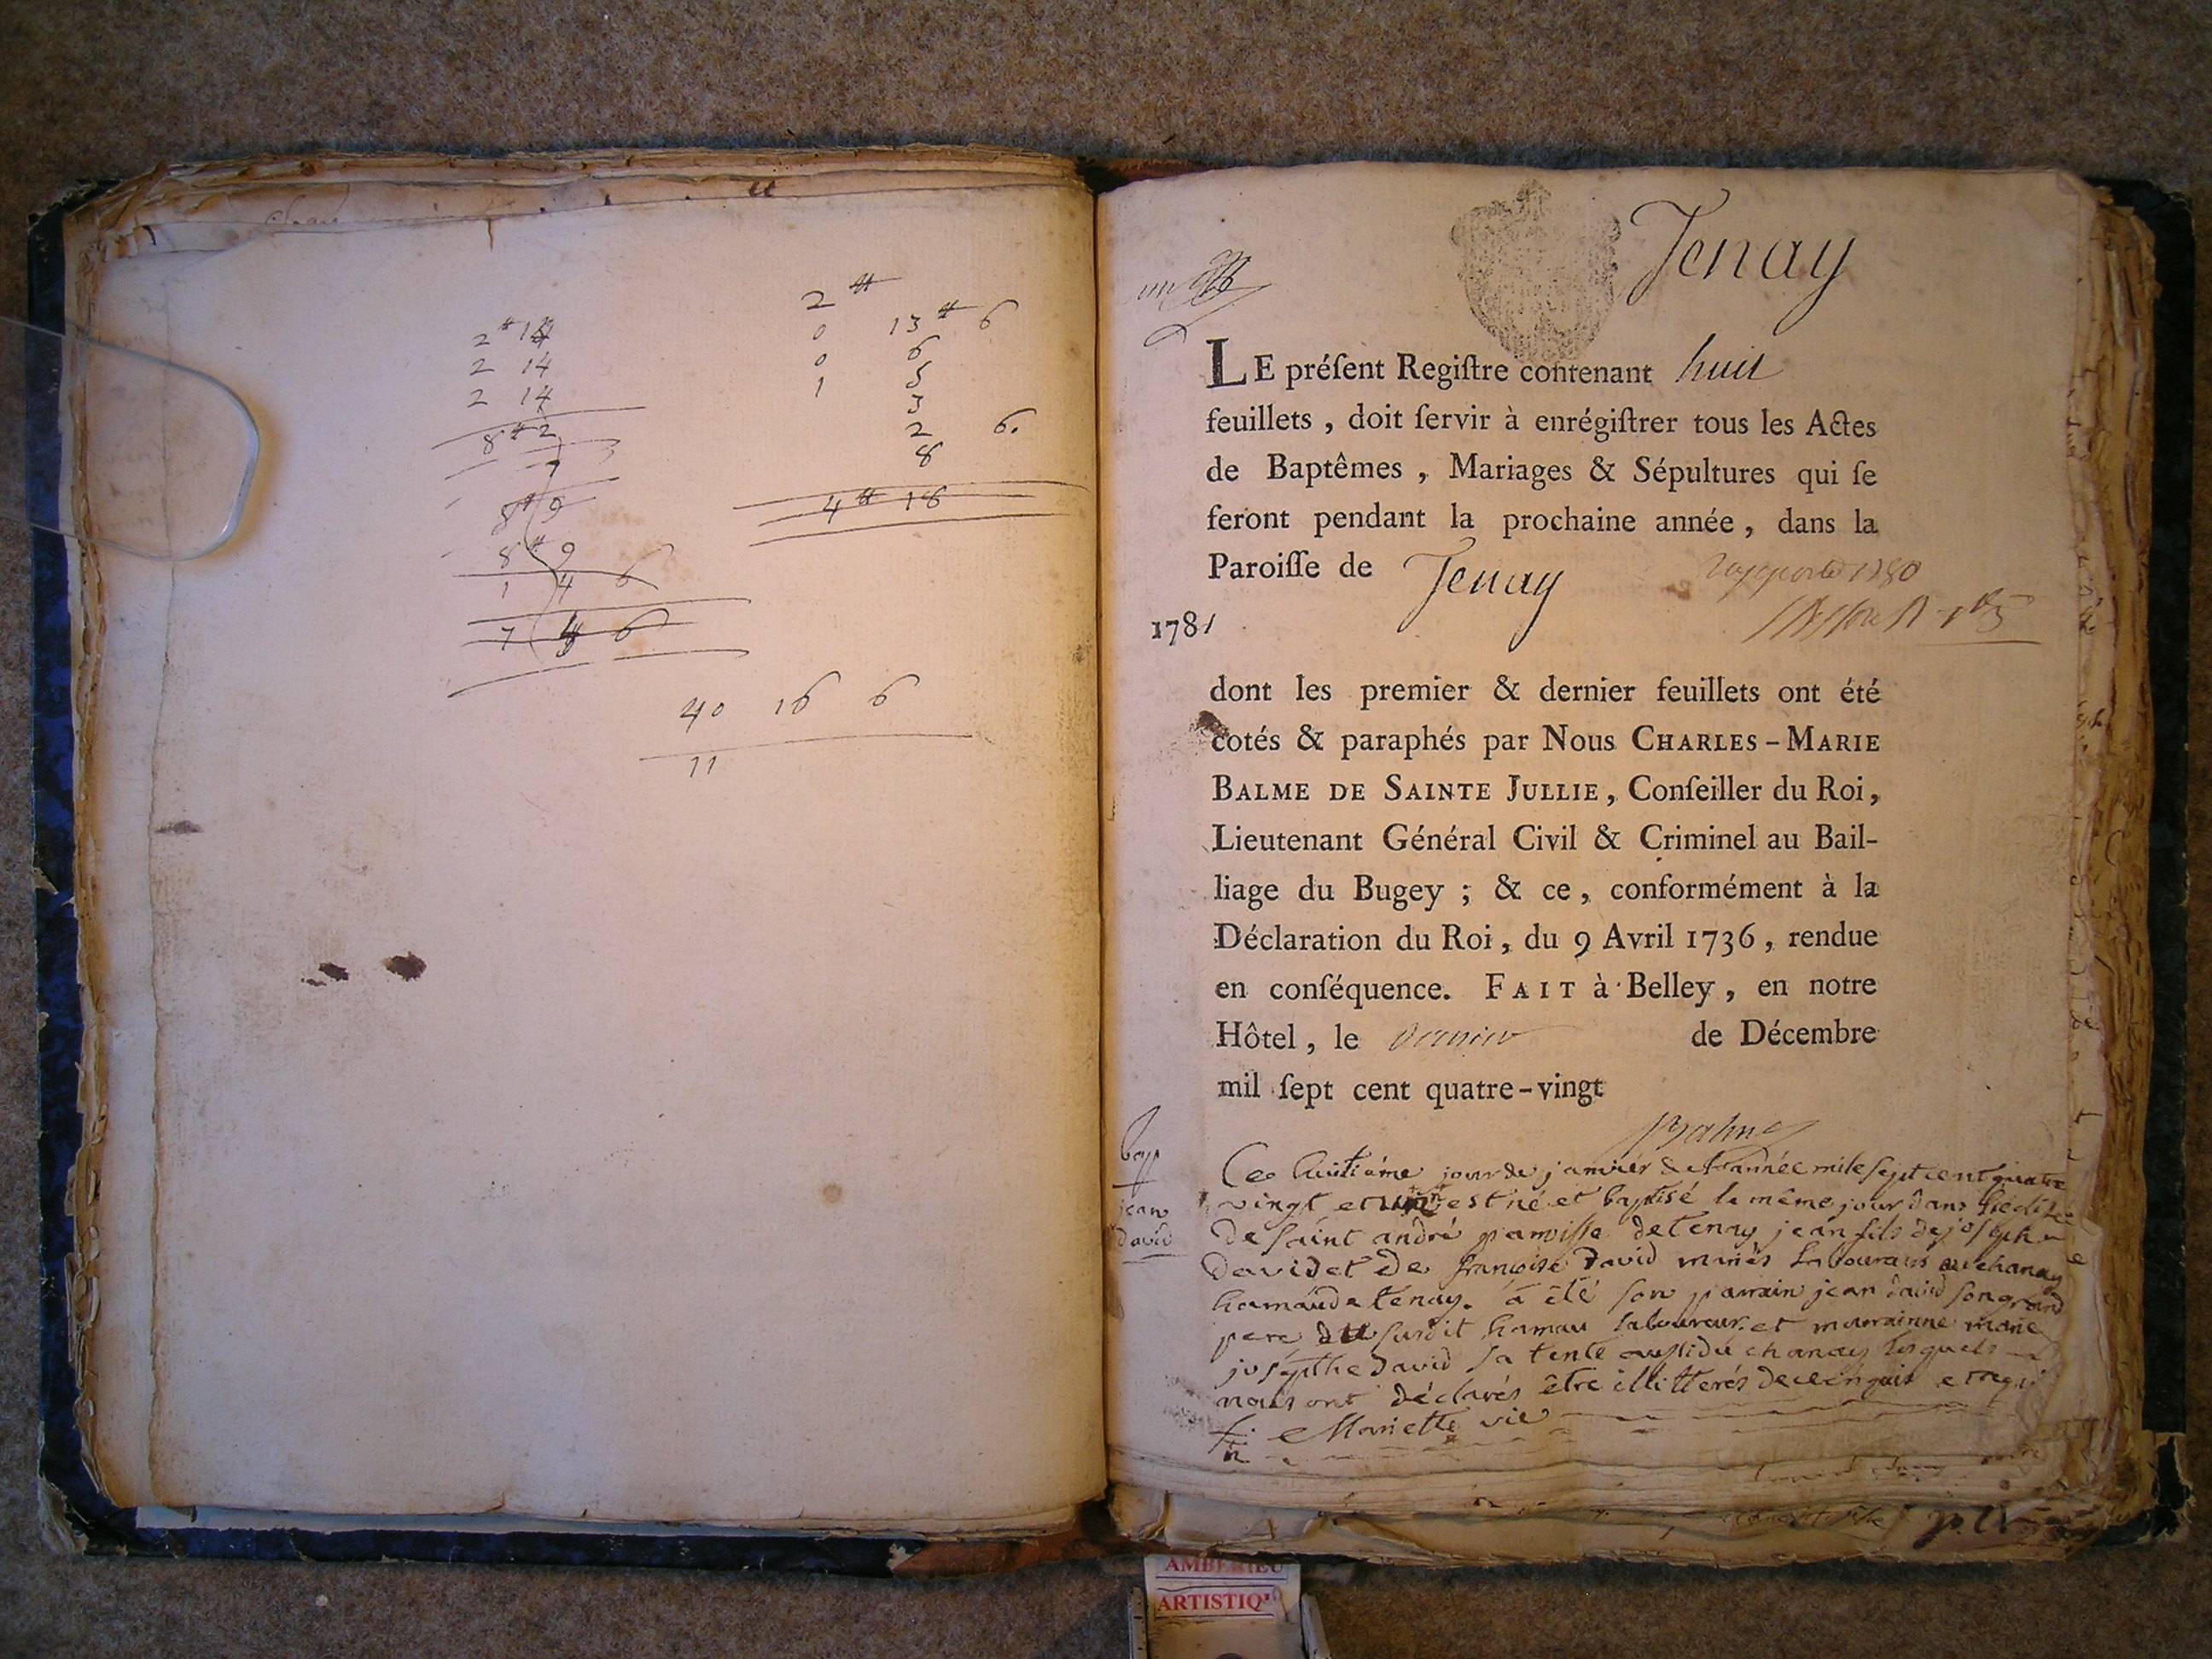 2 ₶ 14
2 14
2 14
8 ₶ 2
7
8 ₶ 9
8 ₶ 9
1 4 6
7 4 6
2 ₶
0 13 ₶ 6
0 6
1 5
3
2 6.
8
4 ₶ 18
40 16 6
11
Tenay
un
LE préſent Regiſtre contenant huit
feuillets, doit ſervir à enrégiſtrer tous les Actes
de Baptêmes, Mariages & Sépultures qui ſe
feront pendant la prochaine année, dans la
Paroiſſe de Tenay
1781
dont les premier & dernier feuillets ont été
cotés & paraphés par Nous CHARLES-MARIE
BALME DE SAINTE JULLIE, Conſeiller du Roi,
Lieutenant Général Civil & Criminel au Bail-
liage du Bugey ; & ce, conformément à la
Déclaration du Roi, du 9 Avril 1736, rendue
en conſéquence. FAIT à Belley, en notre
Hôtel, le dernier de Décembre
mil ſept cent quatre-vingt
Balme
bap
jean
david
Ce huitiéme jour de janviér de l'année mile sept cent quatre
vingt et un est né et baptisé le même jour dans l'eglise
de saint andré paroisse de tenay jean fils de joseph
david et de francoise david mariés laboureurs au chanay
hamaud a tenay. a été son parrain jean david son grand
pere du susdit hamau laboureur. et marrainne marie
joséphe david sa tente aussi du chanay lesquels
nous ont déclarés être illitterés de ce enquis et requi
Mariette vic
AMBERIEU
ARTISTIQ